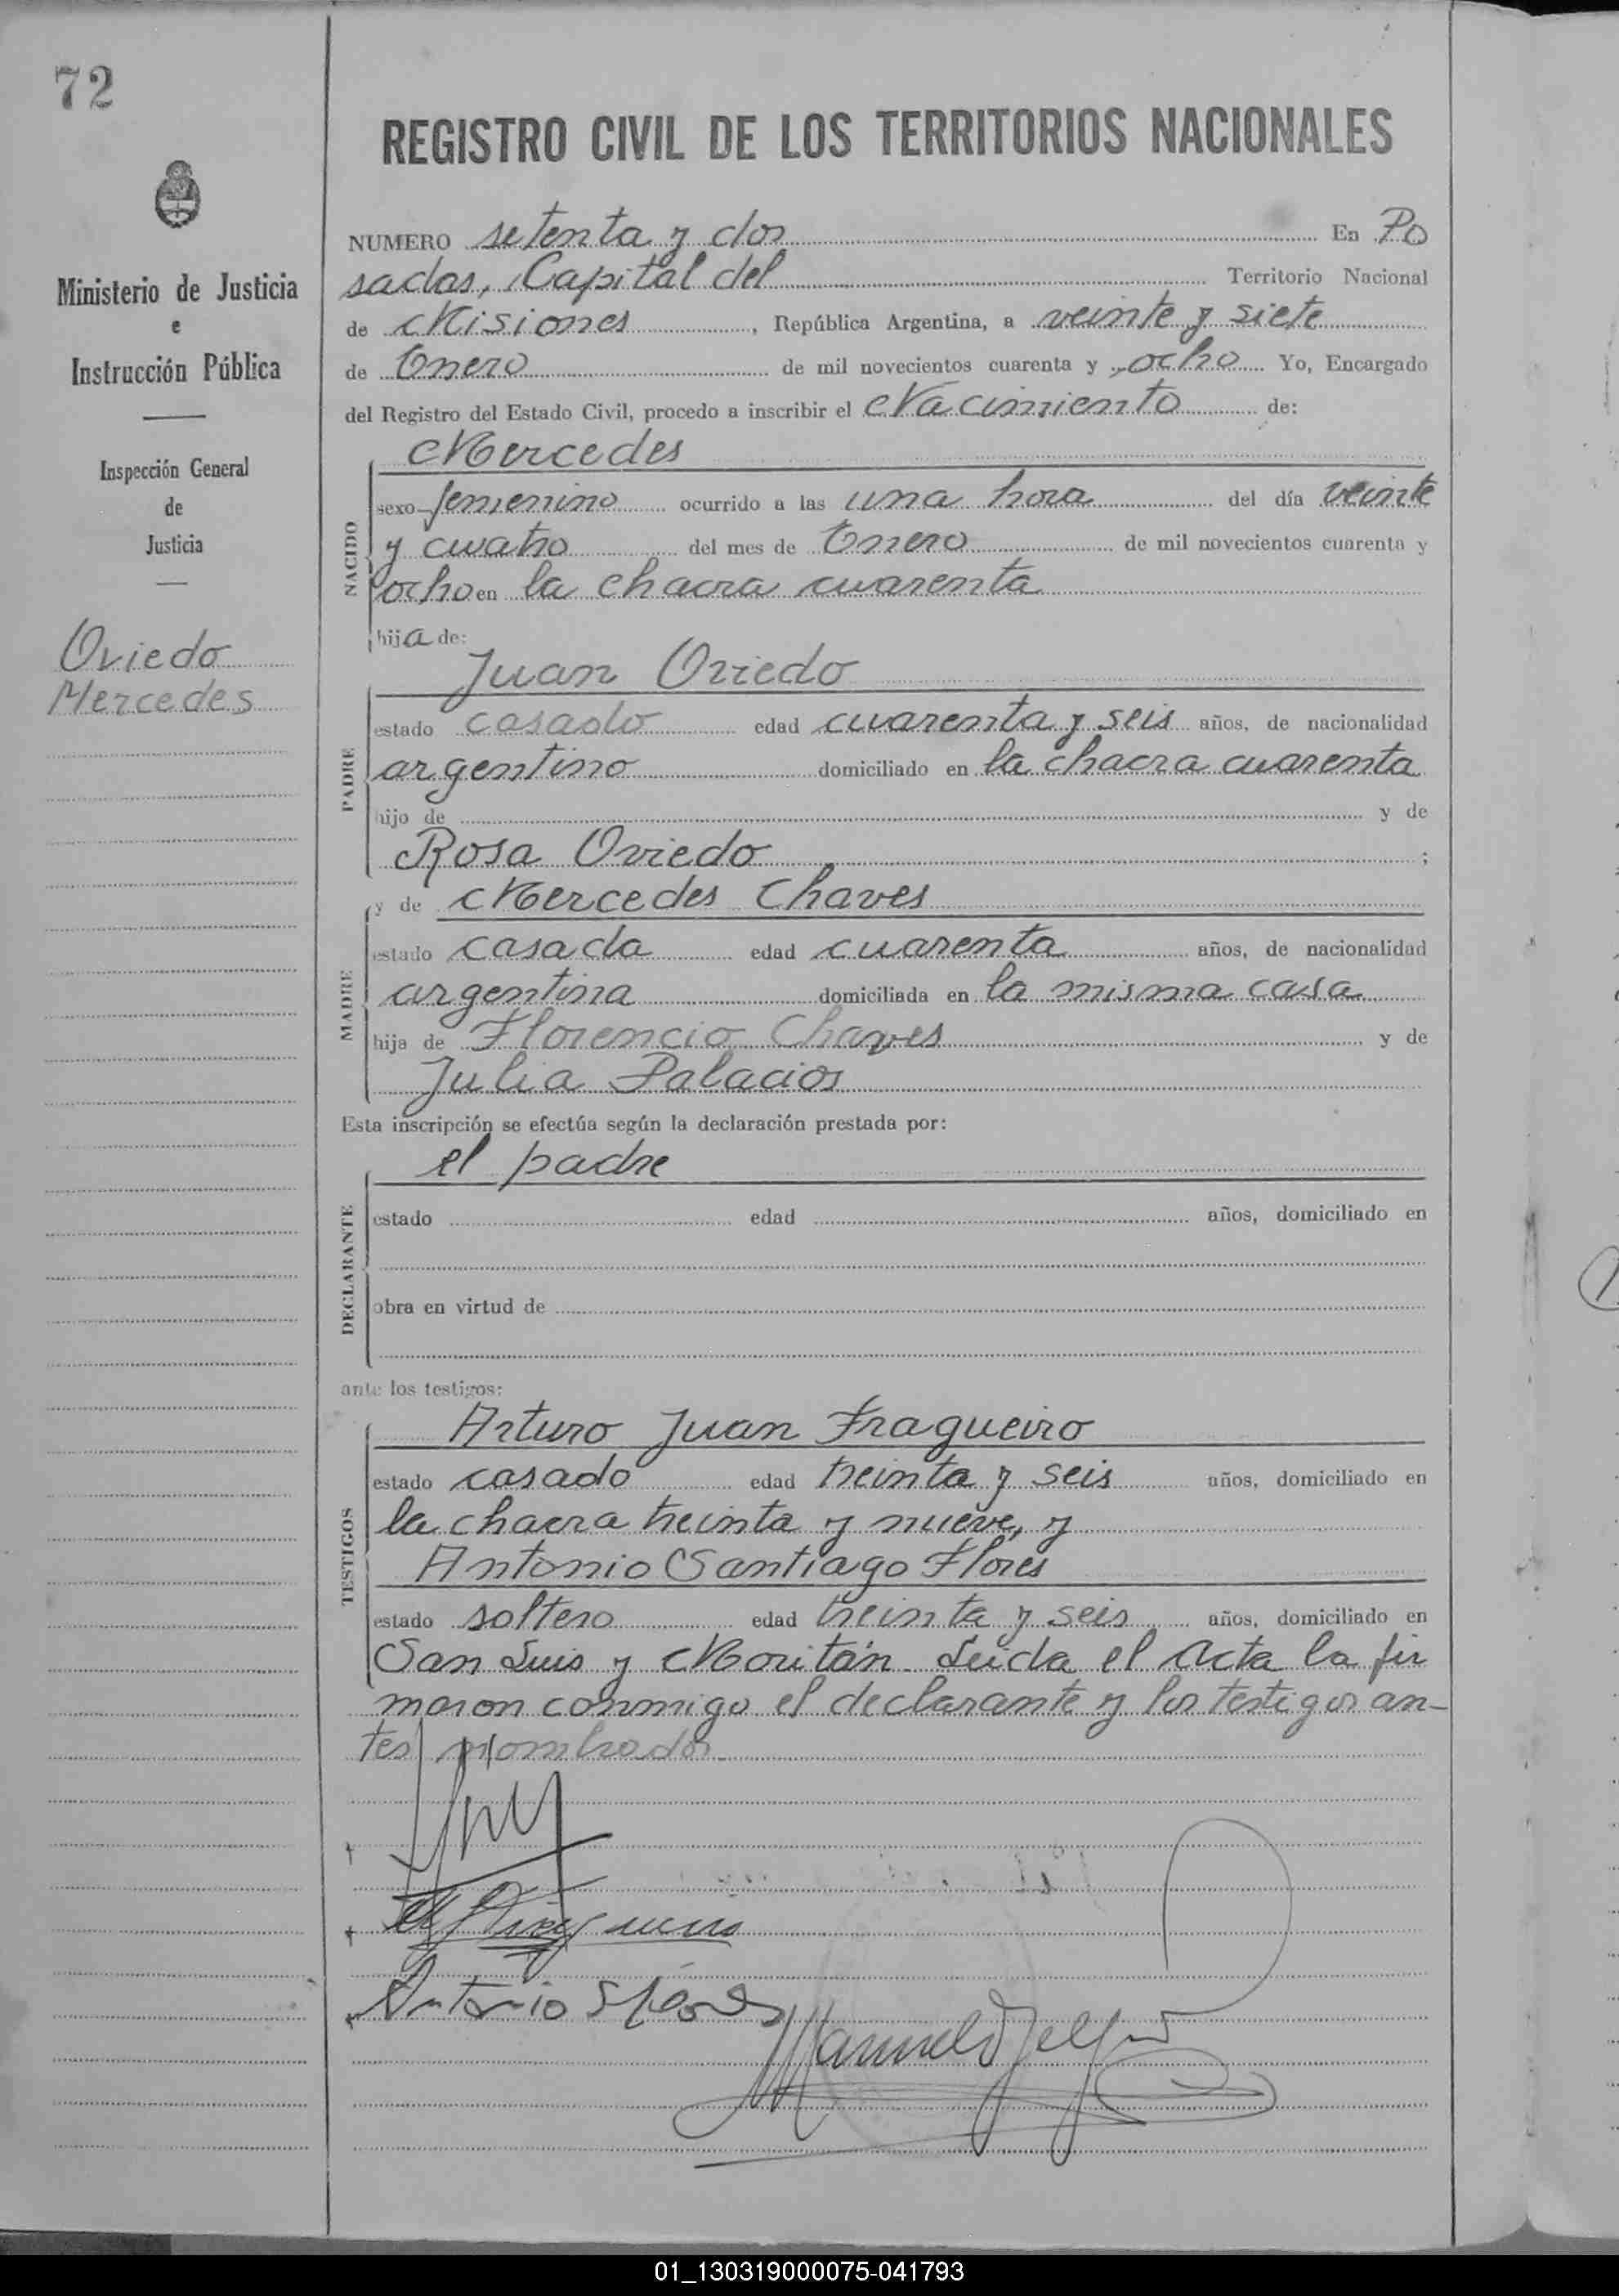 72
Ministerio de Justicia
e
Instrucción Pública
Inspección General
de
Justicia
Oviedo
Mercedes
REGISTRO CIVIL DE LOS TERRITORIOS NACIONALES
NUMERO setenta y dos En Po
sadas, Capital del Territorio Nacional
de Misiones, República Argentina, a veinte y siete
de Enero de mil novecientos cuarenta y ocho Yo, Encargado
del Registro del Estado Civil, procedo a inscribir el Nacimiento de:
NACIDO
Mercedes
sexo femenino ocurrido a las una hora del día veinte
y cuatro del mes de Enero de mil novecientos cuarenta y
ocho en la chacra cuarenta
hija de:
PADRE
Juan Oviedo
estado casado edad cuarenta y seis años, de nacionalidad
argentino domiciliado en la chacra cuarenta
hijo de y de
Rosa Oviedo ;
MADRE
y de Mercedes Chaves
estado casada edad cuarenta años, de nacionalidad
argentina domiciliada en la misma casa
hija de Florencio Chaves y de
Julia Palacios
Esta inscripción se efectúa según la declaración prestada por:
DECLARANTE
el padre
estado edad años, domiciliado en
obra en virtud de
ante los testigos:
TESTIGOS
Arturo Juan Fragueiro
estado casado edad treinta y seis años, domiciliado en
la chacra treinta y nueve, y
Antonio Santiago Flores
estado soltero edad treinta y seis años, domiciliado en
San Luis y Moritán. Leida el acta la fir
maron conmigo el declarante y los testigos an-
tes nombrados
Antonio S Flores
Manuel
01_130319000075-041793